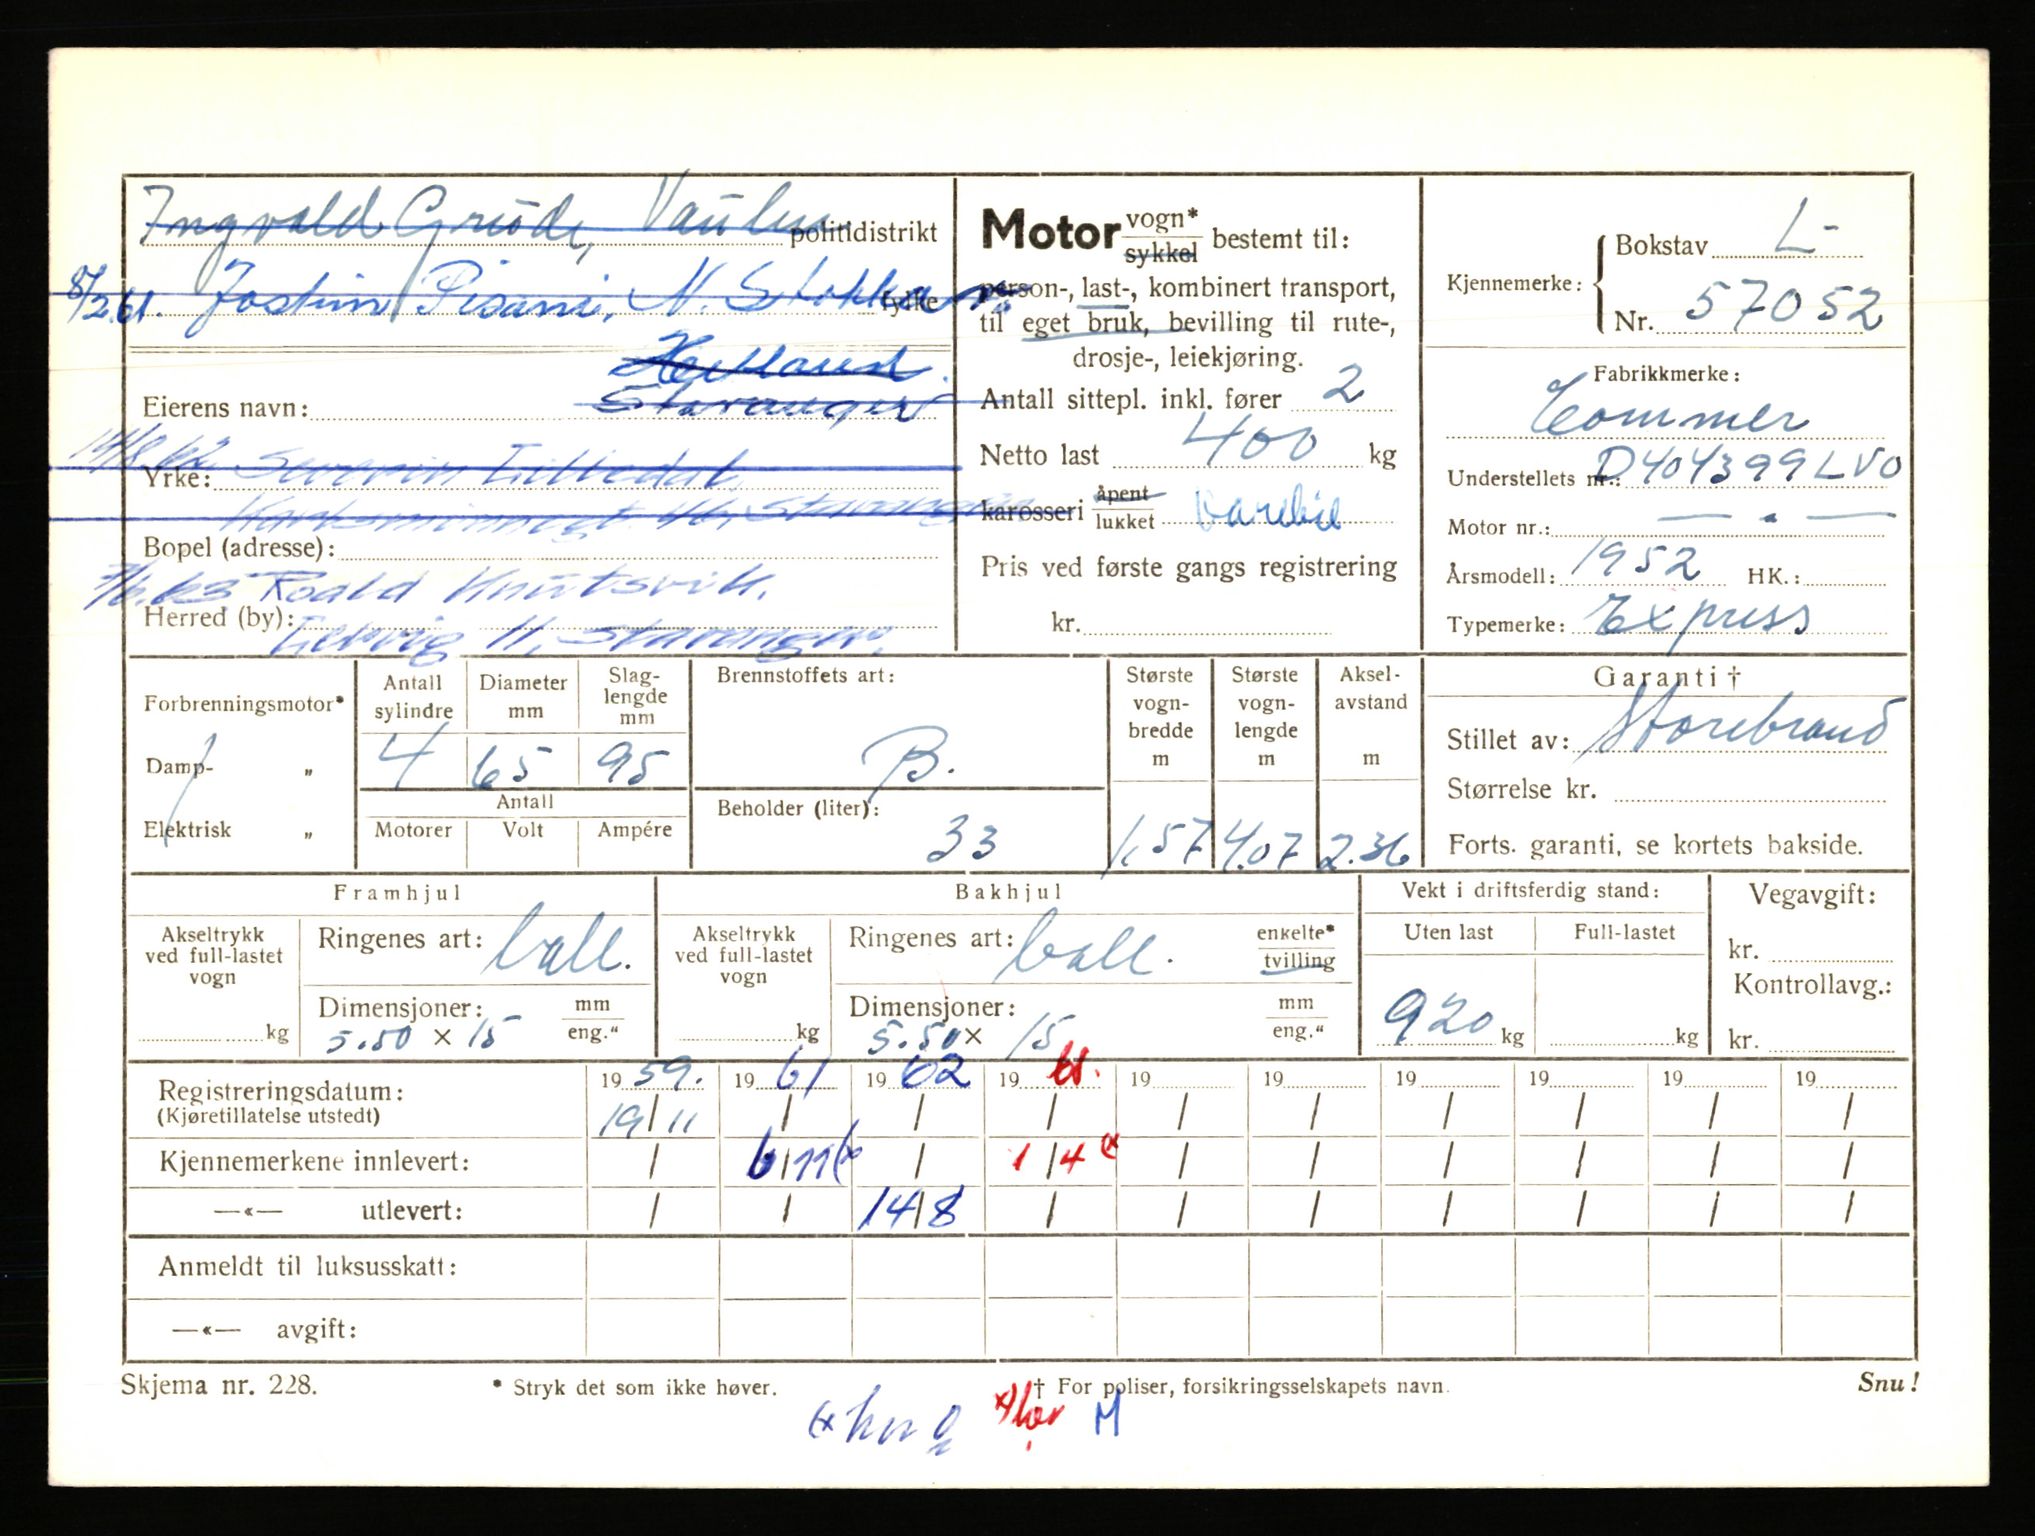 Ingvald Grude, Vaulen politidistrikt
8/2.61. Jostein Pisani, N. Stokka fylke
Hetland.
Eierens navn: Stavanger
14/8.62 Severin Lilledal
Yrke:
16, Stavanger
Bopel (adresse):
7/6.63 Roald Knutsvik.
Herred (by):
11, Stavanger.
Motor vogn* / sykkel bestemt til:
person-, last-, kombinert transport,
til eget bruk, bevilling til rute-,
drosje-, leiekjøring.
Antall sittepl. inkl. fører 2
Netto last 400 kg
karosseri åpent / lukket Varebil
Pris ved første gangs registrering
kr.
Kjennemerke: Bokstav L-
Nr. 57052
Fabrikkmerke:
Commer
Understellets nr.: D404399LVO
Motor nr.: — " —
Årsmodell: 1952 HK.:
Typemerke: Express
Forbrenningsmotor*
Damp- „
Elektrisk „
Antall sylindre 4
Diameter mm 65
Slaglengde mm 95
Antall
Motorer Volt Ampére
Brennstoffets art:
B.
Beholder (liter):
33
Største vognbredde m 1.57
Største vognlengde m 4.07
Akselavstand m 2.36
Garanti †
Stillet av: Storebrand
Størrelse kr.
Forts. garanti, se kortets bakside.
Framhjul
Akseltrykk ved full-lastet vogn kg
Ringenes art: ball.
Dimensjoner: mm / eng.“
5.50 × 15
Bakhjul
Akseltrykk ved full-lastet vogn kg
Ringenes art: ball. enkelte* / tvilling
Dimensjoner: mm / eng.“
5.50 × 15
Vekt i driftsferdig stand:
Uten last Full-lastet
920 kg kg
Vegavgift:
kr.
Kontrollavg.:
kr.
Registreringsdatum: 19 59. 19 61 19 62 19 19 19 19 19 19 19
(Kjøretillatelse utstedt) 19/11 / / / / / / / / /
Kjennemerkene innlevert: / 6/11 (x / 1/4 (x / / / / / /
—«— utlevert: / / 14/8 / / / / / / /
Anmeldt til luksusskatt:
—«— avgift:
Skjema nr. 228. * Stryk det som ikke høver. † For poliser, forsikringsselskapets navn. Snu!
M